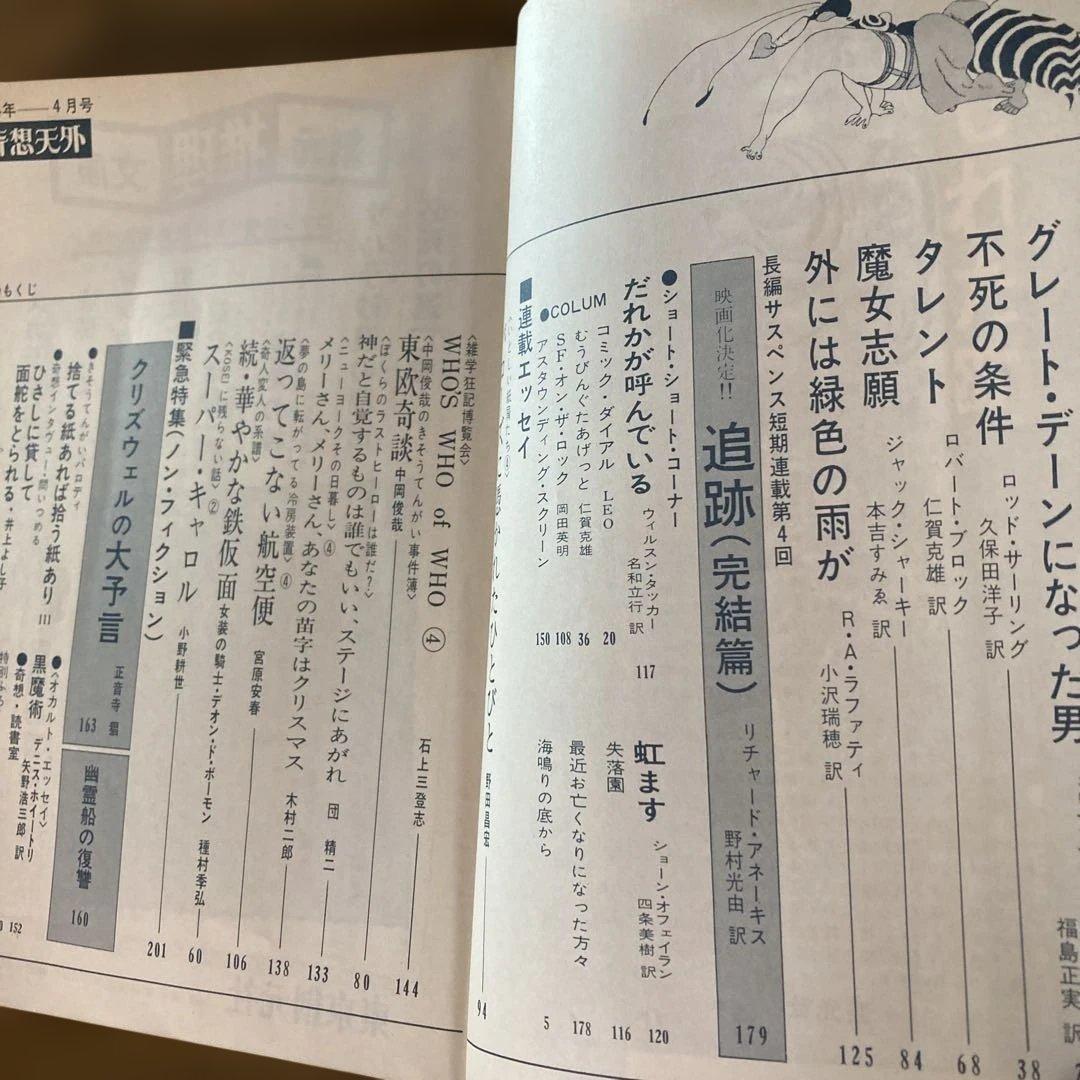 グレート・デーンになった男
福島正実 訳
不死の条件
ロッド・サーリング
久保田洋子 訳
38
タレント
ロバート・ブロック
仁賀克雄 訳
68
魔女志願
ジャック・シャーキー
本吉すみゑ 訳
84
外には緑色の雨が
R・A・ラファティ
小沢瑞穂 訳
125
長編サスペンス短期連載第4回
映画化決定!!
追跡(完結篇)
リチャード・アネーキス
野村光由 訳
179
●ショート・ショート・コーナー
だれかが呼んでいる
ウィルスン・タッカー
名和立行 訳
117
虹ます
ショーン・オフェイラン
四条美樹 訳
120
●COLUM
コミック・ダイアル LEO 20
むうびんぐたあげっと 仁賀克雄 36
SF・オン・ザ・ロック 岡田英明 108
アスタウンディング・スクリーン 150
失落園 116
最近お亡くなりになった方々 178
海鳴りの底から 5
■連載エッセイ
ひとびと
野田昌宏
94
〈雑学狂記博覧会〉
WHO'S WHO of WHO ④
石上三登志
144
〈中岡俊哉のきそうてんがい事件簿〉
東欧奇談 中岡俊哉
80
〈ぼくらのラストヒーローは誰だ?〉
神だと自覚するものは誰でもいい、ステージにあがれ 団 精二
133
〈ニューヨークその日暮し〉④
メリーさん、メリーさん、あなたの苗字はクリスマス 木村二郎
138
〈夢の島に転がってる冷房装置〉④
返ってこない航空便 宮原安春
106
〈奇人変人の系譜〉
続・華やかな鉄仮面 女装の騎士・デオン・ド・ボーモン 種村季弘
60
〈KOSEIに残らない話〉②
スーパー・キャロル 小野耕世
201
■緊急特集(ノン・フィクション)
クリズウェルの大予言
正音寺
163
幽霊船の復讐
160
●きそうてんがいパロディ
捨てる紙あれば拾う紙あり III
●奇想インタヴュー・問いつめる
ひさしに貸して
面舵をとられる・井上よし子
●〈オカルト・エッセイ〉
黒魔術 デニス・ホイートリ
矢野浩三郎 訳
●奇想・読書室
152
年——4月号
奇想天外
もくじ